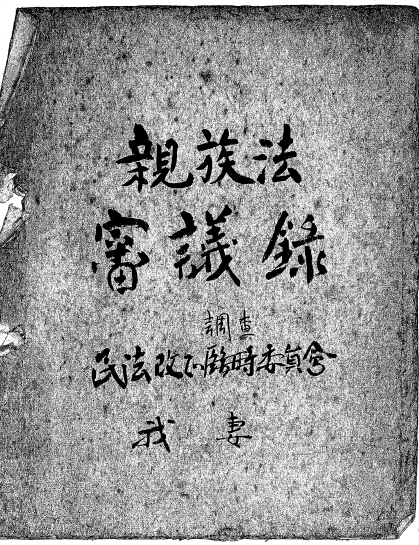 親族法
審議録
調査
民法改正臨時委員会
我妻